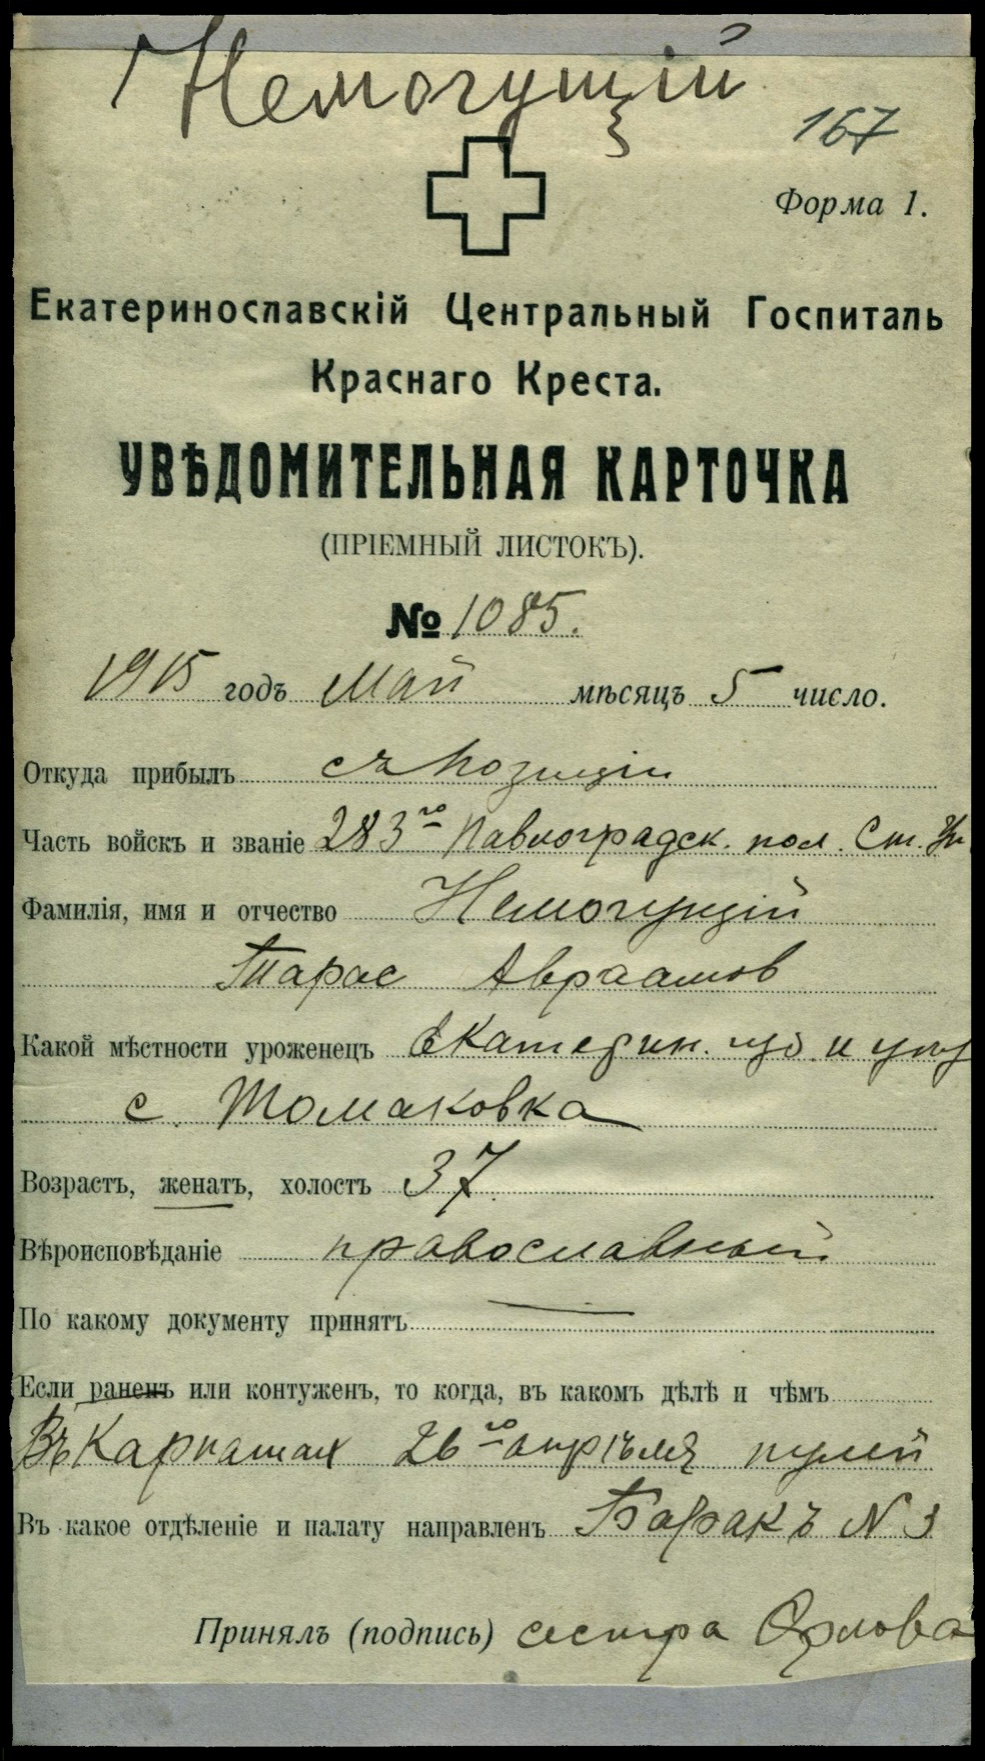 Немогущій
167
Форма 1.
Екатеринославскій Центральный Госпиталь
Краснаго Креста.
УВѢДОМИТЕЛЬНАЯ КАРТОЧКА
(ПРІЕМНЫЙ ЛИСТОКЪ).
№ 1085.
1915 годъ Май мѣсяцъ 5 число.
Откуда прибылъ съ позиціи
Часть войскъ и званіе 283го Павлоградск. пол. Ст. Ун
Фамилія, имя и отчество Немогущій
Тарас Авраамов
Какой мѣстности уроженецъ Екатерин. губ. и уѣз
с. Томаковка
Возрастъ, женатъ, холостъ 37
Вѣроисповѣданіе православный
По какому документу принятъ —
Если раненъ или контуженъ, то когда, въ какомъ дѣлѣ и чѣмъ
Въ Карпатах 26го апрѣля пулей
Въ какое отдѣленіе и палату направленъ Баракъ N 3
Принялъ (подпись) сестра Орлова